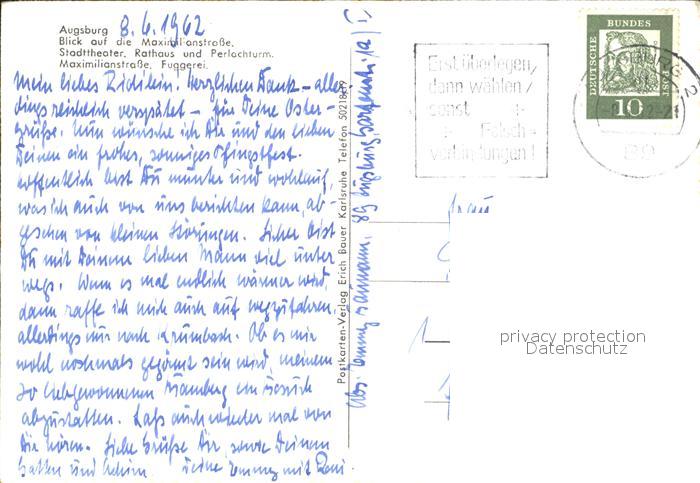 Augsburg 8.6.1962
Blick auf die Maximilianstraße,
Stadttheater, Rathaus und Perlachturm.
Maximilianstraße, Fuggerei.
Mein liebes Zidilein! Herzlichen Dank – aller-
dings reichlich verspätet – für Deine Oster-
grüße. Nun wünsche ich Dir und den lieben
Deinen ein frohes, sonniges Pfingstfest.
Hoffentlich bist Du munter und wohlauf,
was ich auch von uns berichten kann, ab-
gesehen von kleinen Störungen. Sicher bist
Du mit Deinem lieben Mann viel unter-
wegs. Wenn es mal endlich wärmer wird,
dann raffe ich mich auch auf wegzufahren,
allerdings nur nach Krumbach. Ob es mir
wohl nochmals gegönnt sein wird, meinem
so liebgewonnenen Bamberg ein Besuch
abzustatten. Laß auch wieder mal von
Dir hören. Liebe Grüße Dir, sowie Deinem
Gatten und Deine Emmy mit
Postkarten-Verlag Erich Bauer Karlsruhe Telefon 50218/19
Abs. Emmy 89 Augsburg,
Erst überlegen,
dann wählen,
sonst
Falsch-
verbindungen!
DEUTSCHE BUNDES POST
10
AUGSBURG 2
89
Frau
privacy protection
Datenschutz